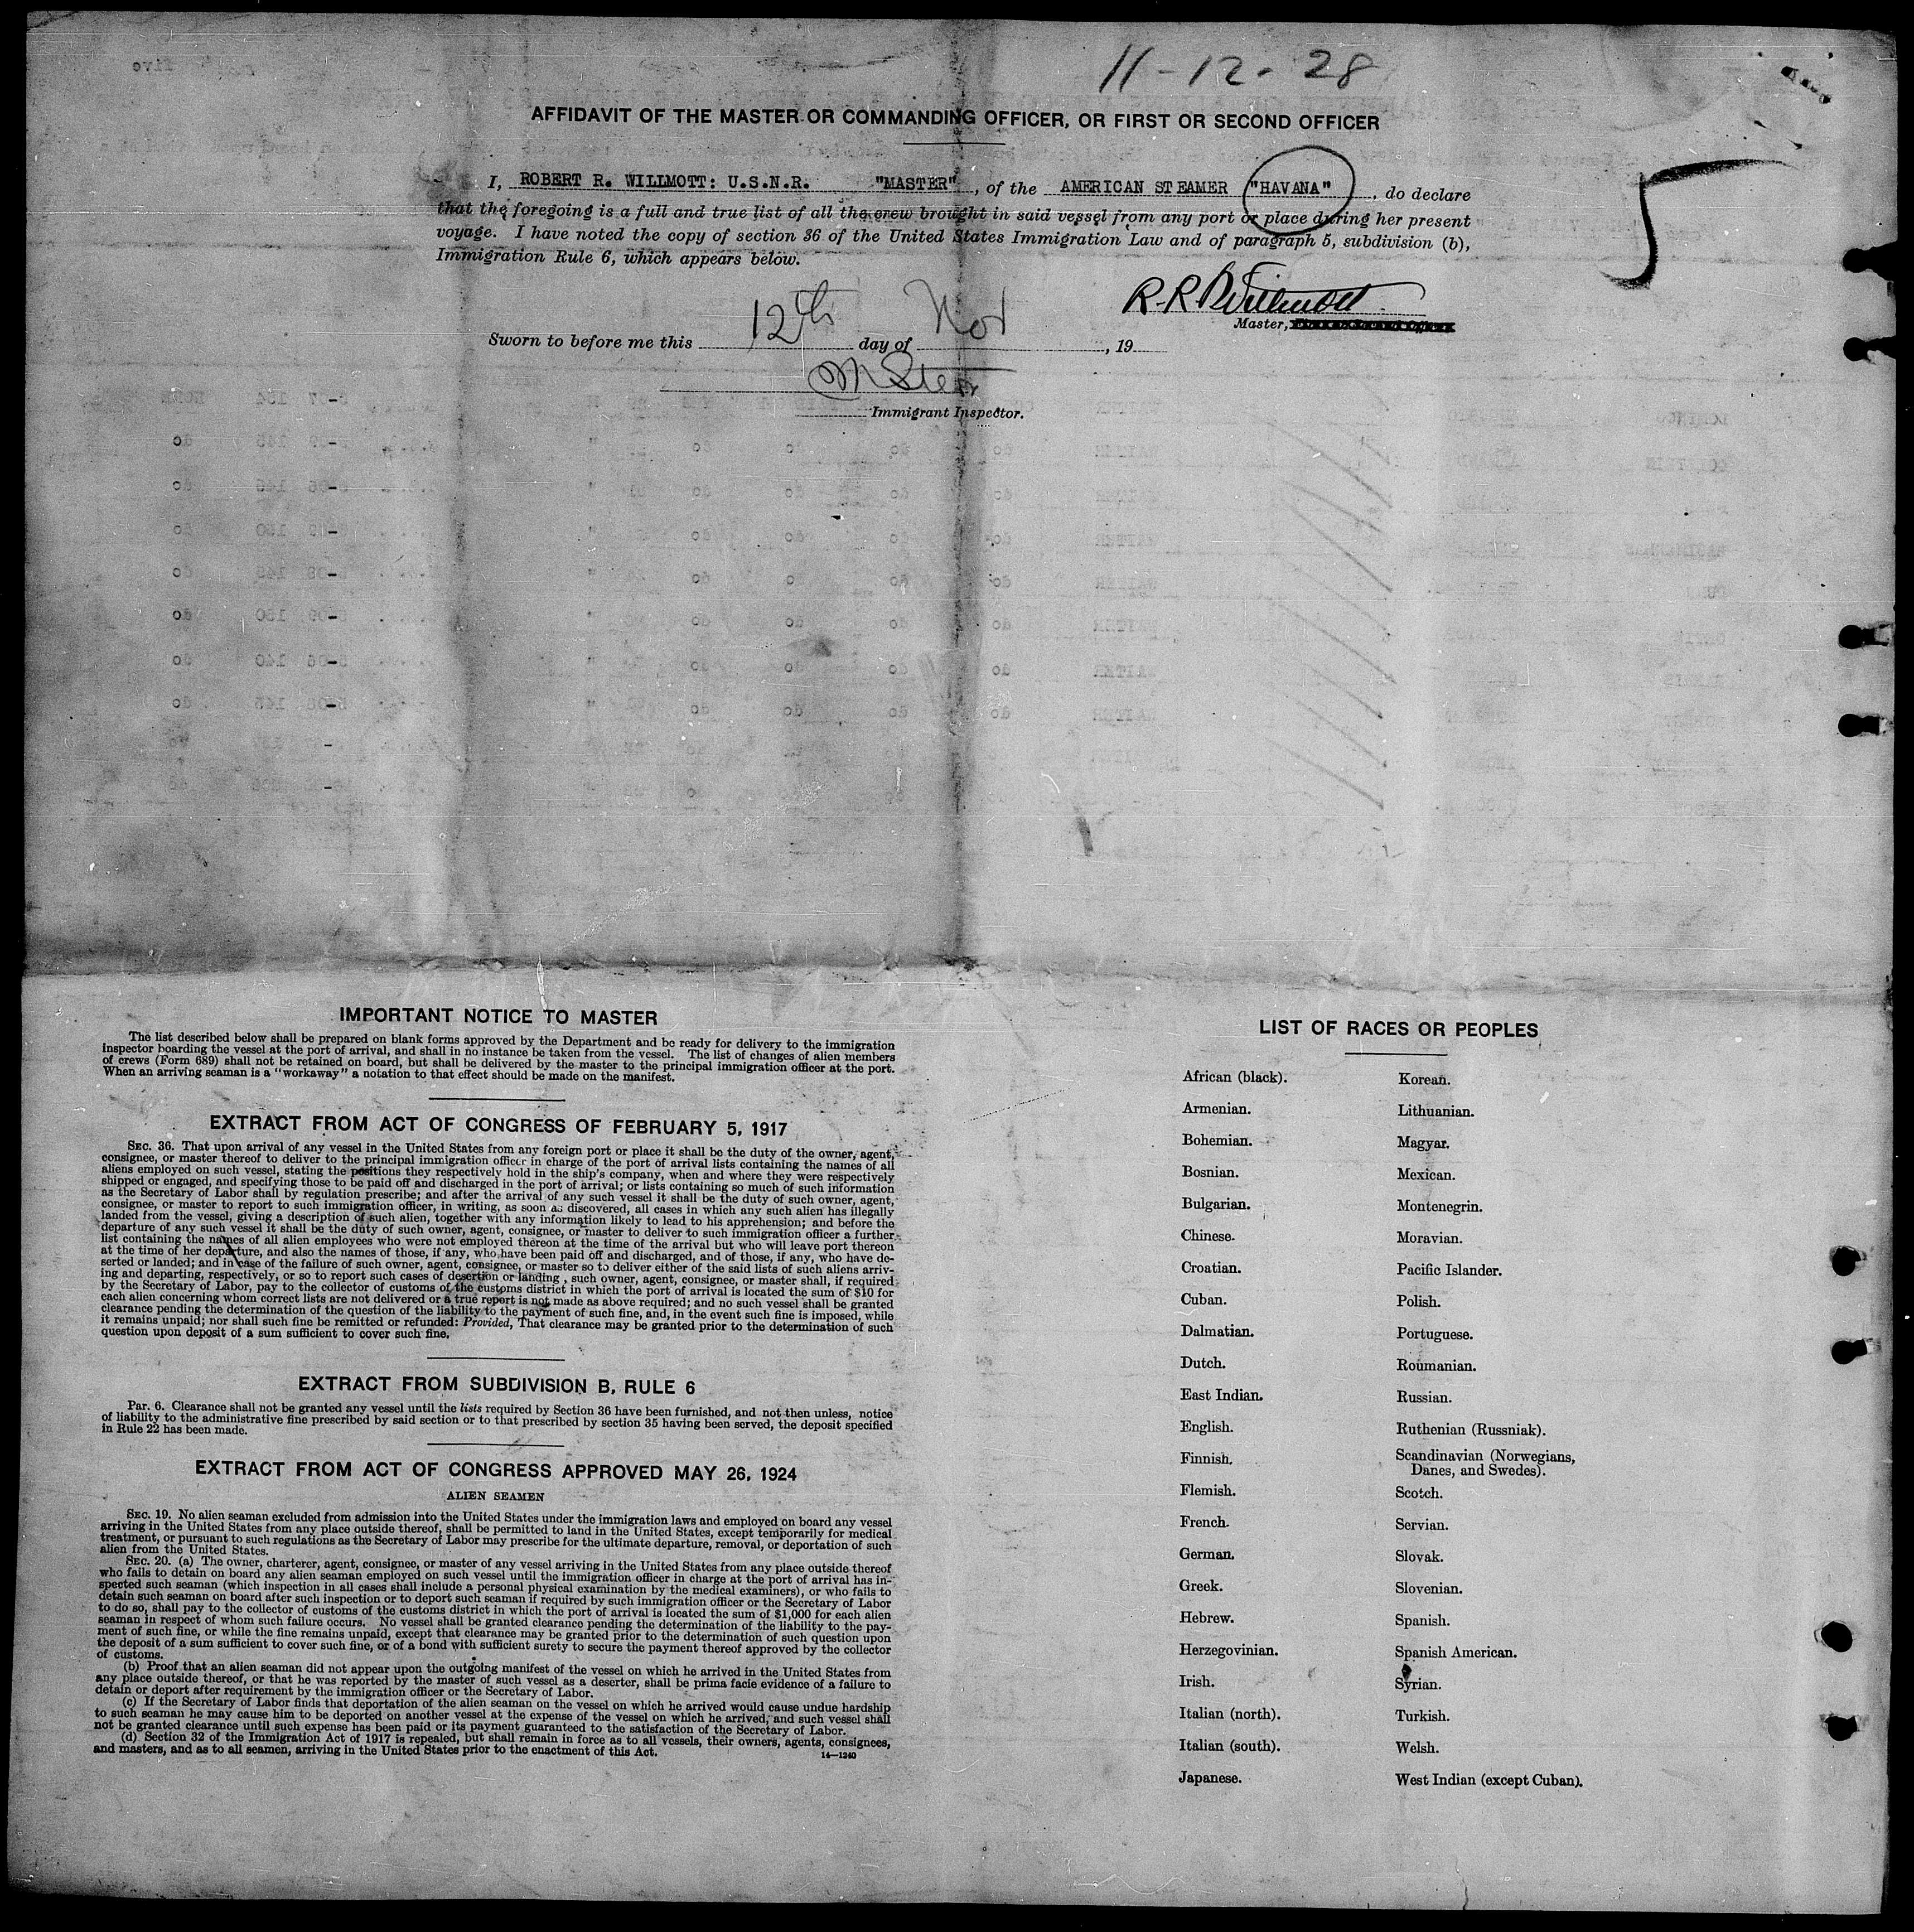 11-12-28
AFFIDAVIT OF THE MASTER OR COMMANDING OFFICER, OR FIRST OR SECOND OFFICER
5
I, ROBERT R. WILLMOTT: U.S.N.R. "MASTER", of the AMERICAN STEAMER "HAVANA", do declare
that the foregoing is a full and true list of all the crew brought in said vessel from any port or place during her present
voyage. I have noted the copy of section 36 of the United States Immigration Law and of paragraph 5, subdivision (b),
Immigration Rule 6, which appears below.
R. R. Willmott
Master,
Sworn to before me this 12th day of Nov, 19
Immigrant Inspector.
IMPORTANT NOTICE TO MASTER
The list described below shall be prepared on blank forms approved by the Department and be ready for delivery to the immigration
inspector boarding the vessel at the port of arrival, and shall in no instance be taken from the vessel. The list of changes of alien members
of crews (Form 689) shall not be retained on board, but shall be delivered by the master to the principal immigration officer at the port.
When an arriving seaman is a "workaway" a notation to that effect should be made on the manifest.
EXTRACT FROM ACT OF CONGRESS OF FEBRUARY 5, 1917
SEC. 36. That upon arrival of any vessel in the United States from any foreign port or place it shall be the duty of the owner, agent,
consignee, or master thereof to deliver to the principal immigration officer in charge of the port of arrival lists containing the names of all
aliens employed on such vessel, stating the positions they respectively hold in the ship's company, when and where they were respectively
shipped or engaged, and specifying those to be paid off and discharged in the port of arrival; or lists containing so much of such information
as the Secretary of Labor shall by regulation prescribe; and after the arrival of any such vessel it shall be the duty of such owner, agent,
consignee, or master to report to such immigration officer, in writing, as soon as discovered, all cases in which any such alien has illegally
landed from the vessel, giving a description of such alien, together with any information likely to lead to his apprehension; and before the
departure of any such vessel it shall be the duty of such owner, agent, consignee, or master to deliver to such immigration officer a further
list containing the names of all alien employees who were not employed thereon at the time of the arrival but who will leave port thereon
at the time of her departure, and also the names of those, if any, who have been paid off and discharged, and of those, if any, who have de-
serted or landed; and in case of the failure of such owner, agent, consignee, or master so to deliver either of the said lists of such aliens arriv-
ing and departing, respectively, or so to report such cases of desertion or landing , such owner, agent, consignee, or master shall, if required
by the Secretary of Labor, pay to the collector of customs of the customs district in which the port of arrival is located the sum of $10 for
each alien concerning whom correct lists are not delivered or a true report is not made as above required; and no such vessel shall be granted
clearance pending the determination of the question of the liability to the payment of such fine, and, in the event such fine is imposed, while
it remains unpaid; nor shall such fine be remitted or refunded: Provided, That clearance may be granted prior to the determination of such
question upon deposit of a sum sufficient to cover such fine.
EXTRACT FROM SUBDIVISION B, RULE 6
Par. 6. Clearance shall not be granted any vessel until the lists required by Section 36 have been furnished, and not then unless, notice
of liability to the administrative fine prescribed by said section or to that prescribed by section 35 having been served, the deposit specified
in Rule 22 has been made.
EXTRACT FROM ACT OF CONGRESS APPROVED MAY 26, 1924
ALIEN SEAMEN
SEC. 19. No alien seaman excluded from admission into the United States under the immigration laws and employed on board any vessel
arriving in the United States from any place outside thereof, shall be permitted to land in the United States, except temporarily for medical
treatment, or pursuant to such regulations as the Secretary of Labor may prescribe for the ultimate departure, removal, or deportation of such
alien from the United States.
SEC. 20. (a) The owner, charterer, agent, consignee, or master of any vessel arriving in the United States from any place outside thereof
who fails to detain on board any alien seaman employed on such vessel until the immigration officer in charge at the port of arrival has in-
spected such seaman (which inspection in all cases shall include a personal physical examination by the medical examiners), or who fails to
detain such seaman on board after such inspection or to deport such seaman if required by such immigration officer or the Secretary of Labor
to do so, shall pay to the collector of customs of the customs district in which the port of arrival is located the sum of $1,000 for each alien
seaman in respect of whom such failure occurs. No vessel shall be granted clearance pending the determination of the liability to the pay-
ment of such fine, or while the fine remains unpaid, except that clearance may be granted prior to the determination of such question upon
the deposit of a sum sufficient to cover such fine, or of a bond with sufficient surety to secure the payment thereof approved by the collector
of customs.
(b) Proof that an alien seaman did not appear upon the outgoing manifest of the vessel on which he arrived in the United States from
any place outside thereof, or that he was reported by the master of such vessel as a deserter, shall be prima facie evidence of a failure to
detain or deport after requirement by the immigration officer or the Secretary of Labor.
(c) If the Secretary of Labor finds that deportation of the alien seaman on the vessel on which he arrived would cause undue hardship
to such seaman he may cause him to be deported on another vessel at the expense of the vessel on which he arrived, and such vessel shall
not be granted clearance until such expense has been paid or its payment guaranteed to the satisfaction of the Secretary of Labor.
(d) Section 32 of the Immigration Act of 1917 is repealed, but shall remain in force as to all vessels, their owners, agents, consignees,
and masters, and as to all seamen, arriving in the United States prior to the enactment of this Act.
14—1240
LIST OF RACES OR PEOPLES
African (black). Korean.
Armenian. Lithuanian.
Bohemian. Magyar.
Bosnian. Mexican.
Bulgarian. Montenegrin.
Chinese. Moravian.
Croatian. Pacific Islander.
Cuban. Polish.
Dalmatian. Portuguese.
Dutch. Roumanian.
East Indian. Russian.
English. Ruthenian (Russniak).
Finnish. Scandinavian (Norwegians,
Danes, and Swedes).
Flemish. Scotch.
French. Servian.
German. Slovak.
Greek. Slovenian.
Hebrew. Spanish.
Herzegovinian. Spanish American.
Irish. Syrian.
Italian (north). Turkish.
Italian (south). Welsh.
Japanese. West Indian (except Cuban).